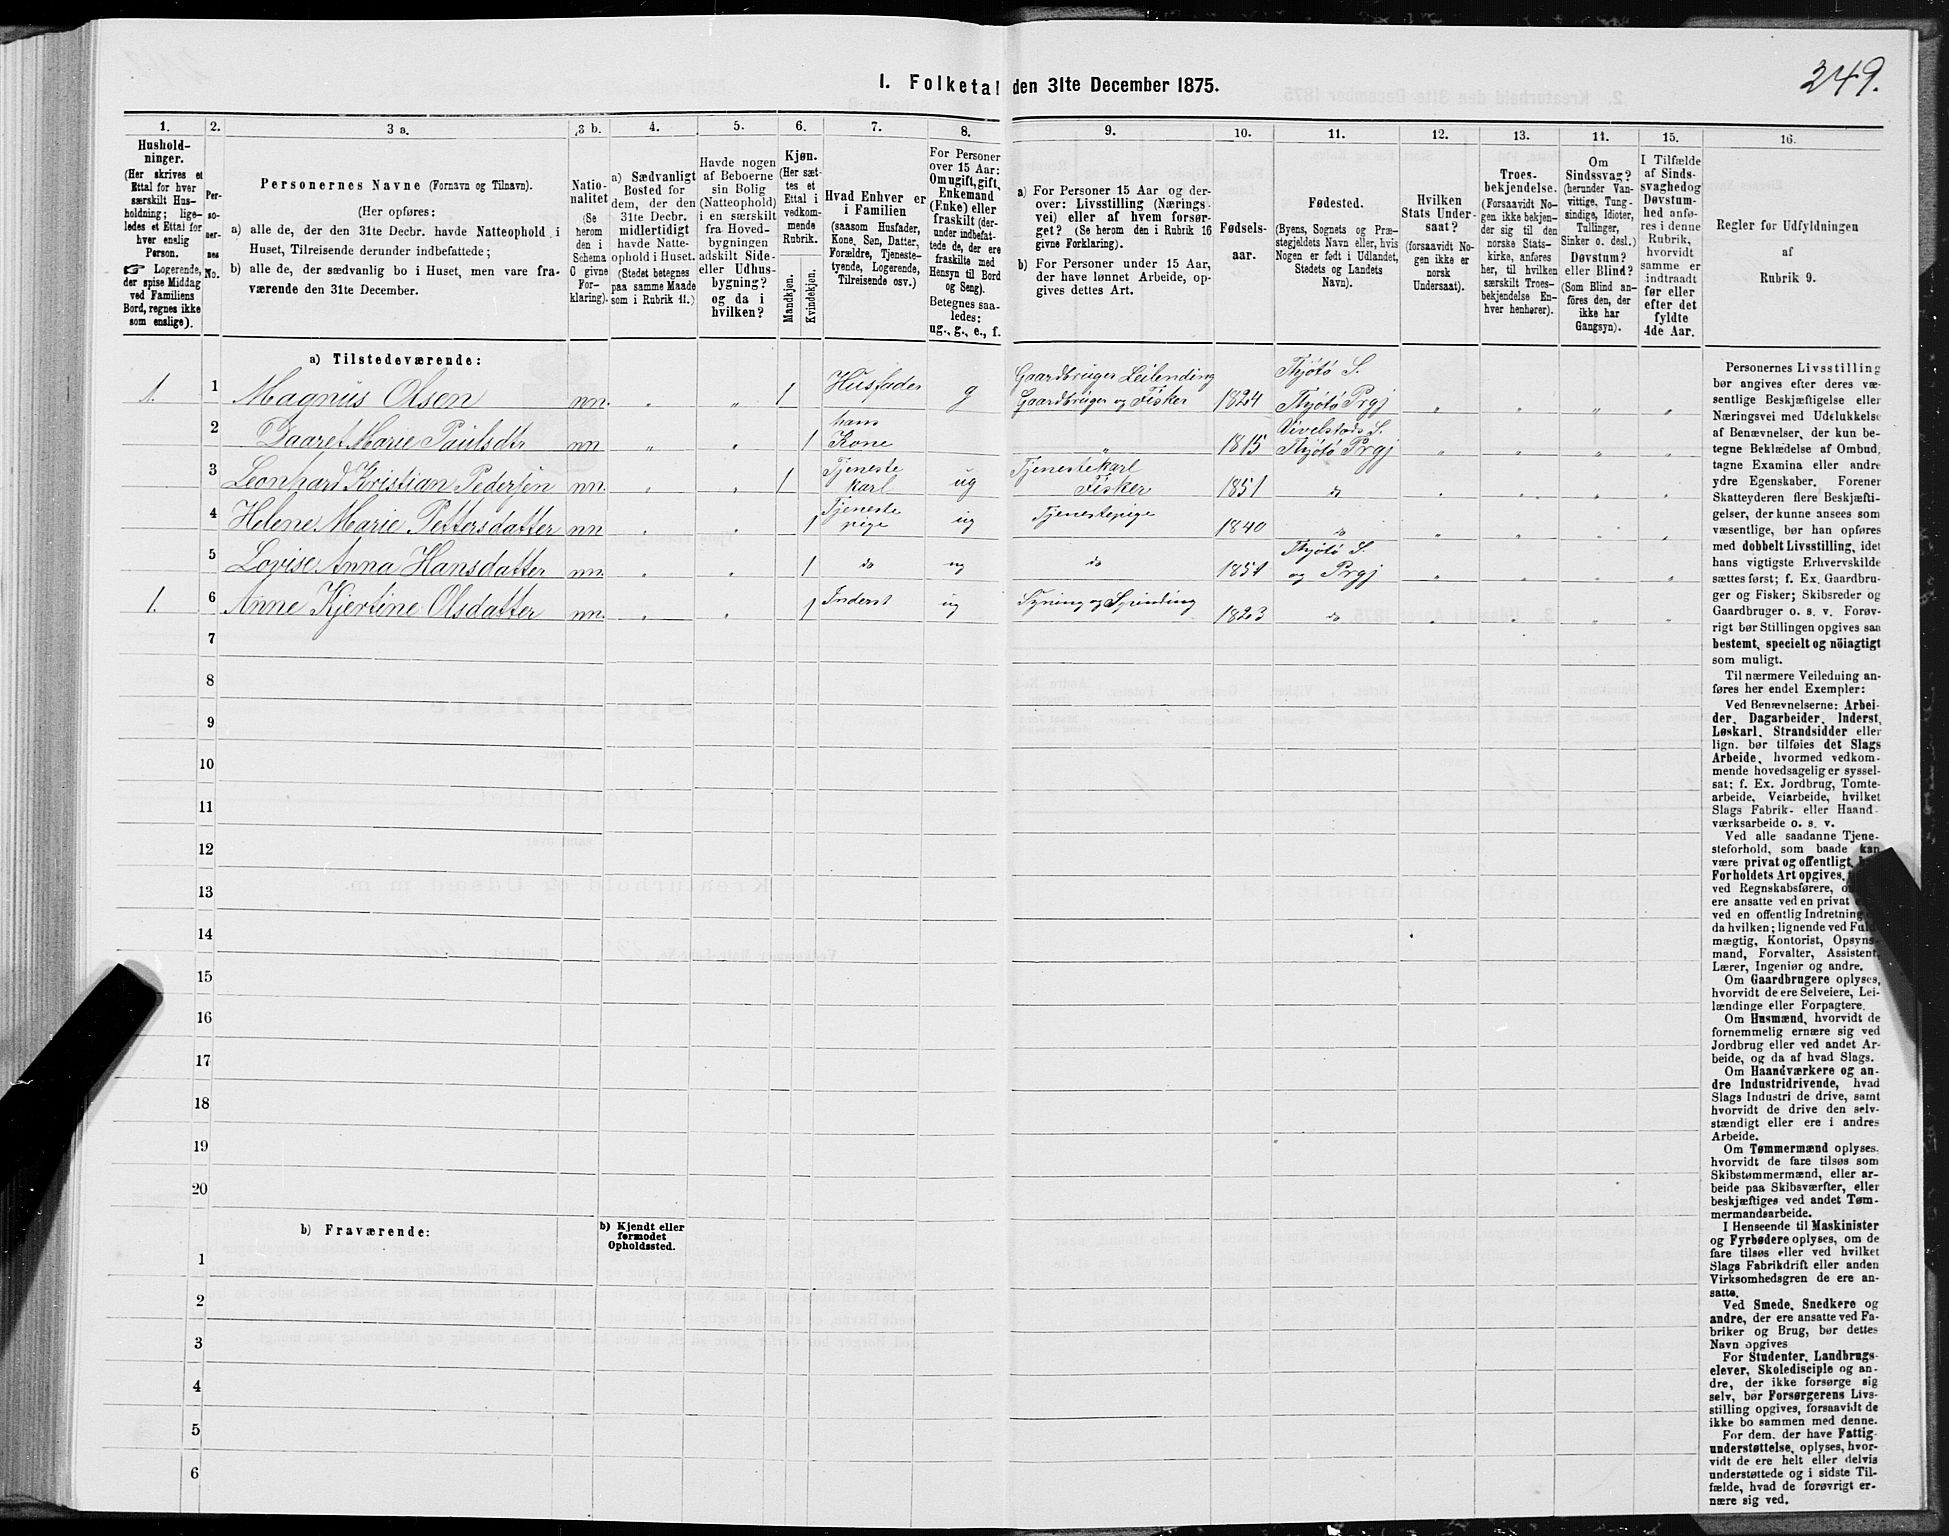 249.
I. Folketal den 31te December 1875.
1. 2. 3 a. 3 b. 4. 5. 6. 7. 8. 9. 10. 11. 12. 13. 14. 15. 16.
Hushold-
ninger.
(Her skrives et
Ettal for hver
særskilt Hus-
holdning; lige-
ledes et Ettal for
hver enslig
Person.
☞ Logerende,
der spise Middag
ved Familiens
Bord, regnes ikke
som enslige).
Per-
so-
ner-
nes
No.
Personernes Navne (Fornavn og Tilnavn).
(Her opføres:
a) alle de, der den 31te Decbr. havde Natteophold i
Huset, Tilreisende derunder indbefattede;
b) alle de, der sædvanlig bo i Huset, men vare fra-
værende den 31te December.
Natio-
nalitet
(Se
herom
den i
Schema
C givne
For-
klaring).
a) Sædvanligt
Bosted for
dem, der den
31te Decbr.
midlertidigt
havde Natte-
ophold i Huset.
(Stedet betegnes
paa samme Maade
som i Rubrik 11.)
Havde nogen
af Beboerne
sin Bolig
(Natteophold)
i en særskilt
fra Hoved-
bygningen
adskilt Side-
eller Udhus-
bygning?
og da i
hvilken?
Kjøn.
(Her sæt-
tes et
Ettal i
vedkom-
mende
Rubrik.
Mandkjøn.
Kvindekjøn.
Hvad Enhver er
i Familien
(saasom Husfader,
Kone, Søn, Datter,
Forældre, Tjeneste-
tyende, Logerende,
Tilreisende osv.)
For Personer
over 15 Aar:
Om ugift, gift,
Enkemand
(Enke) eller
fraskilt (der-
under indbefat-
tede de, der ere
fraskilte med
Hensyn til Bord
og Seng).
Betegnes saa-
ledes:
ug., g., e., f.
a) For Personer 15 Aar og der-
over: Livsstilling (Nærings-
vei) eller af hvem forsør-
get? (Se herom den i Rubrik 16
givne Forklaring).
b) For Personer under 15 Aar,
der have lønnet Arbeide, op-
gives dettes Art.
Fødsels-
aar.
Fødested.
(Byens, Sognets og Præ-
stegjeldets Navn eller, hvis
Nogen er født i Udlandet,
Stedets og Landets
Navn).
Hvilken
Stats Under-
saat?
(forsaavidt No-
gen ikke er
norsk
Undersaat).
Troes-
bekjendelse.
(Forsaavidt No-
gen ikke bekjen-
der sig til den
norske Stats-
kirke, anføres
her, til hvilken
særskilt Troes-
bekjendelse En-
hver henhører).
Om
Sindssvag?
(herunder Van-
vittige, Tung-
sindige, Idioter,
Tullinger,
Sinker o. desl.)
Døvstum?
eller Blind?
(Som Blind an-
føres den, der
ikke har
Gangsyn).
I Tilfælde
af Sinds-
svaghed og
Døvstum-
hed anfø-
res i denne
Rubrik,
hvorvidt
samme er
indtraadt
før eller
efter det
fyldte
4de Aar.
Regler for Udfyldningen
af
Rubrik 9.
a) Tilstedeværende:
1. 1 Magnus Olsen nn. " " 1 Husfader g Gaardbruger Leilending Gaardbruger og Fisker 1824 Thjøtø S. Thjøtø Prgj " " " "
2 Daaret Marie Paulsdtr nn " " 1 hans Kone " 1815 Vivelstads S. Thjøtø Prgj " " " "
3 Leonhard Kristian Pedersen nn. " " 1 Tjeneste karl ug Tjenestekarl Fisker 1851 do " " " "
4 Helene Marie Pettersdatter nn " " 1 Tjeneste pige ug Tjenestepige 1840 do " " " "
5 Lovise Anna Hansdatter nn. " " 1 do ug do 1854 Thjøtø S. og Prgj " " " "
1. 6 Anne Kjertine Olsdatter nn. " " 1 Inderst ug Syning og Spinding 1823 do " " " "
7
8
9
10
11
12
13
14
15
16
17
18
19
20
b) Fraværende:
b) Kjendt eller
formodet
Opholdssted.
1
2
3
4
5
6
Personernes Livsstilling
bør angives efter deres væ-
sentlige Beskjæftigelse eller
Næringsvei med Udelukkelse
af Benævnelser, der kun be-
tegne Beklædelse af Ombud,
tagne Examina eller andre
ydre Egenskaber. Forener
Skatteyderen flere Beskjæfti-
gelser, der kunne ansees som
væsentlige, bør han opføres
med dobbelt Livsstilling, idet
hans vigtigste Erhvervskilde
sættes først; f. Ex. Gaardbru-
ger og Fisker; Skibsreder og
Gaardbruger o. s. v. Forøv-
rigt bør Stillingen opgives saa
bestemt, specielt og nöiagtigt
som muligt.
Til nærmere Veiledning an-
føres her endel Exempler:
Ved Benævnelserne: Arbei-
der, Dagarbeider, Inderst,
Løskarl, Strandsidder eller
lign. bør tilføies det Slags
Arbeide, hvormed vedkom-
mende hovedsagelig er syssel-
sat; f. Ex. Jordbrug, Tomte-
arbeide, Veiarbeide, hvilket
Slags Fabrik- eller Haand-
værksarbeide o. s. v.
Ved alle saadanne Tjene-
steforhold, som baade kan
være privat og offentligt,
Forholdets Art opgives,
ved Regnskabsførere,
ere ansatte ved en privat
ved en offentlig Indretning
da hvilken; lignende ved Fuld-
mægtig, Kontorist, Opsyns-
mand, Forvalter, Assistent,
Lærer, Ingeniør og andre.
Om Gaardbrugere oplyses,
hvorvidt de ere Selveiere, Lei-
lændinge eller Forpagtere.
Om Husmænd, hvorvidt de
fornemmelig ernære sig ved
Jordbrug eller ved andet Ar-
beide, og da af hvad Slags.
Om Haandværkere og an-
dre Industridrivende, hvad
Slags Industri de drive, samt
hvorvidt de drive den selv-
stændigt eller ere i andres
Arbeide.
Om Tømmermænd oplyses,
hvorvidt de fare tilsøs som
Skibstømmermænd, eller ar-
beide paa Skibsværfter, eller
beskjæftiges ved andet Tøm-
mermandsarbeide.
I Henseende til Maskinister
og Fyrbødere oplyses, om de
fare tilsøs eller ved hvilket
Slags Fabrikdrift eller anden
Virksomhedsgren de ere an-
satte.
Ved Smede, Snedkere og
andre, der ere ansatte ved Fa-
briker og Brug, bør dettes
Navn opgives
For Studenter, Landbrugs-
elever, Skoledisciple og an-
dre, der ikke forsørge sig
selv, bør Forsørgerens Livs-
stilling opgives, forsaavidt de
ikke bo sammen med denne.
For dem, der have Fattig-
understøttelse, oplyses, hvor-
vidt de ere helt eller delvis
understøttede og i sidste Til-
fælde, hvad de forøvrigt er-
nære sig ved.